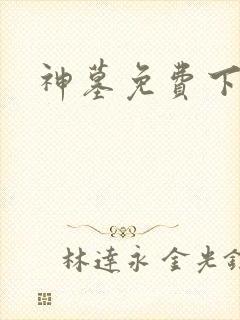 神墓免費下
林達永 金光